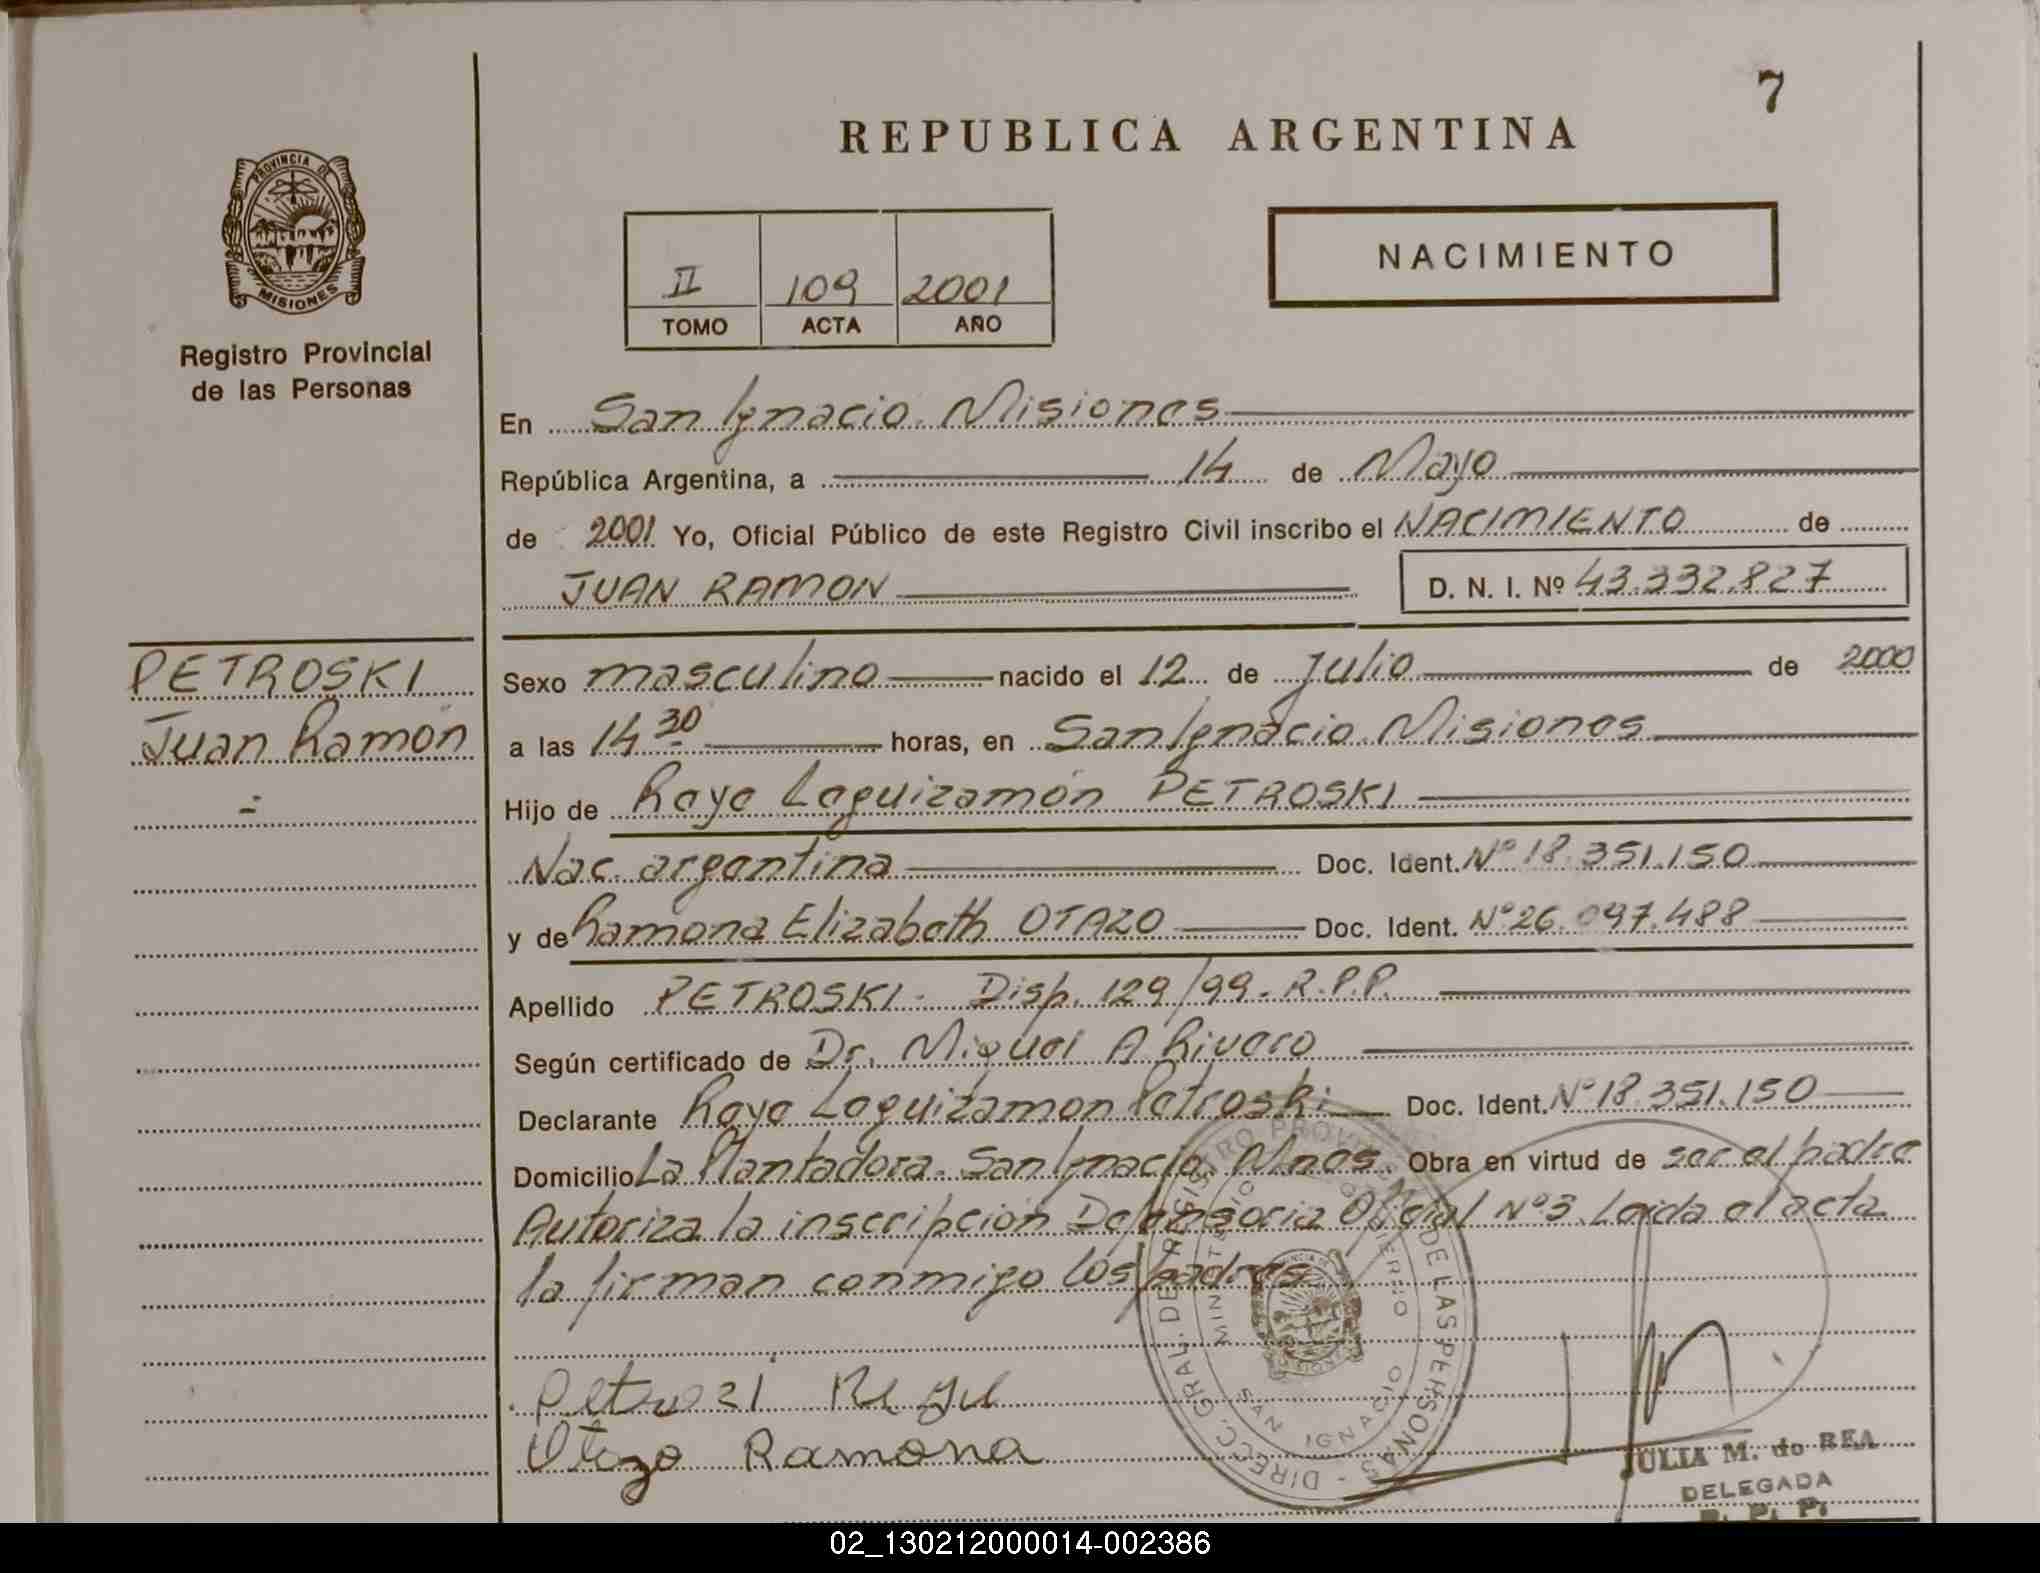 7
REPUBLICA ARGENTINA
PROVINCIA DE
MISIONES
Registro Provincial
de las Personas
NACIMIENTO
II 109 2001
TOMO ACTA AÑO
En San Ignacio. Misiones
República Argentina, a 14 de Mayo
de 2001 Yo, Oficial Público de este Registro Civil inscribo el NACIMIENTO de
JUAN RAMON D. N. I. Nº 43.332.827
PETROSKI
Juan Ramón
Sexo masculino nacido el 12 de Julio de 2000
a las 14 30 horas, en San Ignacio. Misiones
Hijo de Raye Leguizamón PETROSKI
Nac. argentina Doc. Ident. Nº 18.351.150
y de Ramona Elizabeth OTAZO Doc. Ident. Nº 26.097.488
Apellido PETROSKI - Disp. 129/99 - R.P.P.
Según certificado de Dr. Miguel A Rivero
Declarante Raye Leguizamon Petroski Doc. Ident. Nº 18.351.150
Domicilio La Plantadora. San Ignacio. Mnes. Obra en virtud de ser el padre
Autoriza la inscripción Defensoria Oficial Nº 3. Leida el acta
la firman conmigo los padres
Otazo Ramona
DIREC. GRAL. DE REGISTRO PROVINCIAL DE LAS PERSONAS
MINISTERIO DE GOBIERNO
SAN IGNACIO
JULIA M. do REA
DELEGADA
R. P. P.
02_130212000014-002386